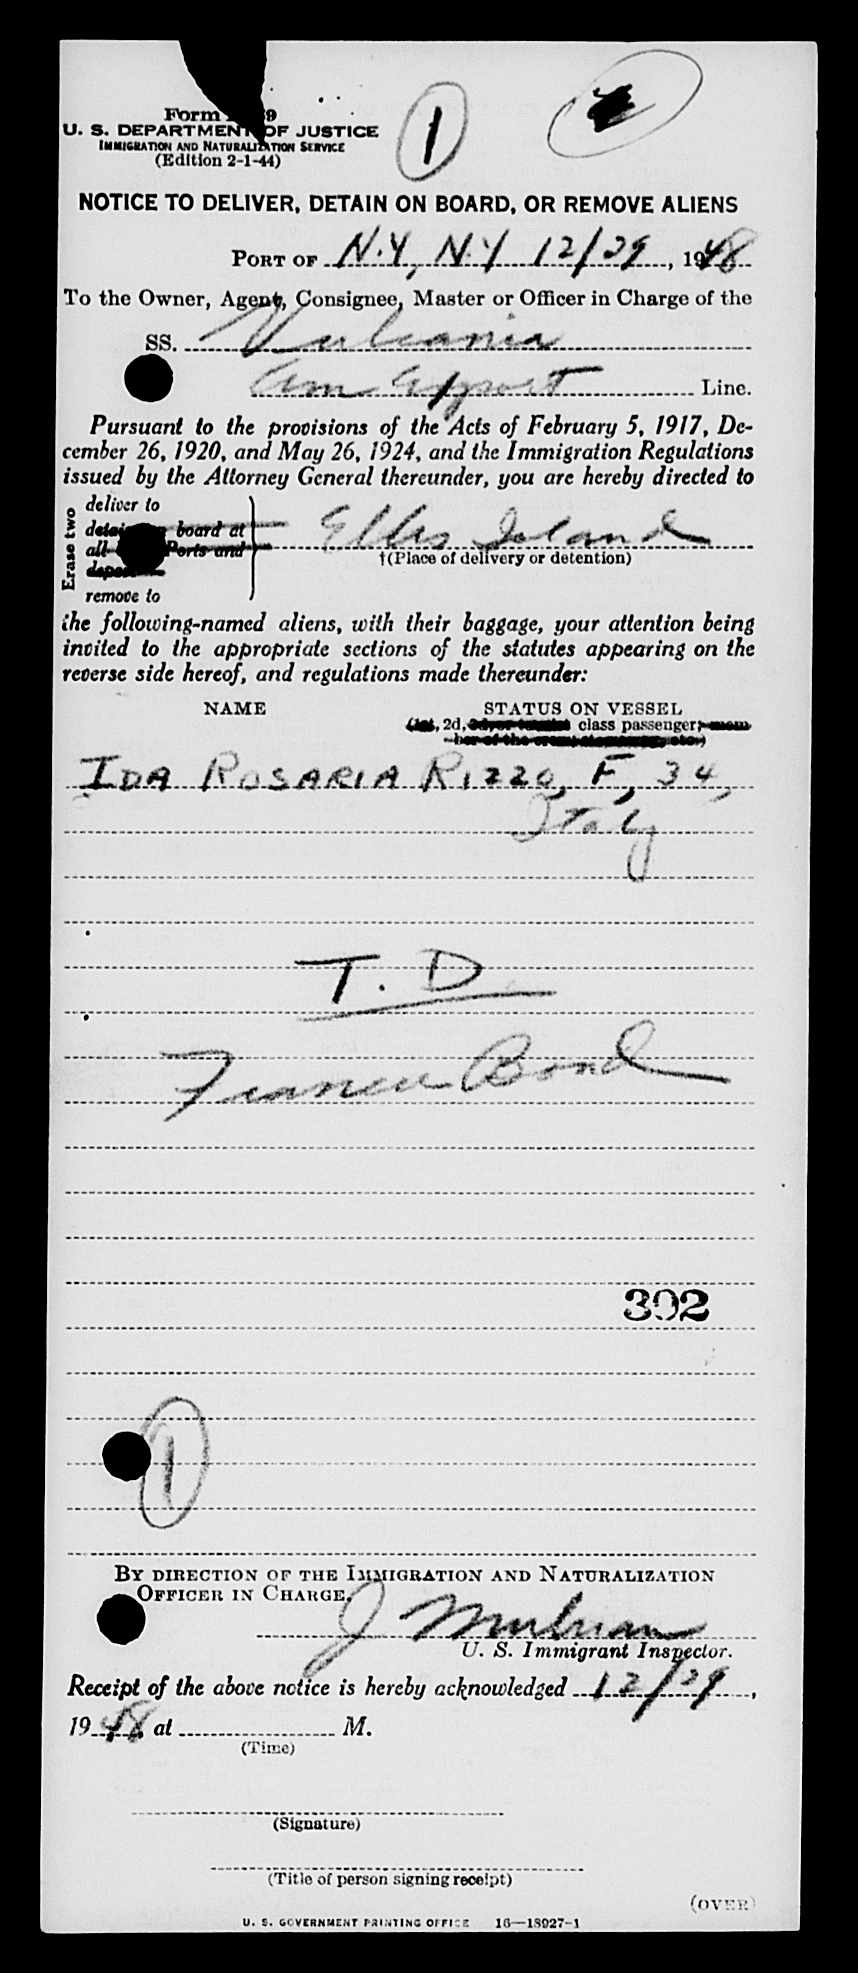 Form 9
U. S. DEPARTMENT OF JUSTICE
IMMIGRATION AND NATURALIZATION SERVICE
(Edition 2-1-44)
1
NOTICE TO DELIVER, DETAIN ON BOARD, OR REMOVE ALIENS
PORT OF N.Y, N.Y 12/29, 1948
To the Owner, Agent, Consignee, Master or Officer in Charge of the
SS. Vulcania
Am Export Line.
Pursuant to the provisions of the Acts of February 5, 1917, De-
cember 26, 1920, and May 26, 1924, and the Immigration Regulations
issued by the Attorney General thereunder, you are hereby directed to
Erase two
deliver to
board at
all Ports and
remove to
Ellis Island
†(Place of delivery or detention)
the following-named aliens, with their baggage, your attention being
invited to the appropriate sections of the statutes appearing on the
reverse side hereof, and regulations made thereunder:
NAME STATUS ON VESSEL
(1st, 2d, class passenger; mem-
ber of the crew,
IDA ROSARIA RIZZO, F, 34,
Italy
T. D
Bond
302
1
BY DIRECTION OF THE IMMIGRATION AND NATURALIZATION
OFFICER IN CHARGE.
J
U. S. Immigrant Inspector.
Receipt of the above notice is hereby acknowledged 12/29,
1948 at M.
(Time)
(Signature)
(Title of person signing receipt)
(OVER)
U. S. GOVERNMENT PRINTING OFFICE 16—18927-1